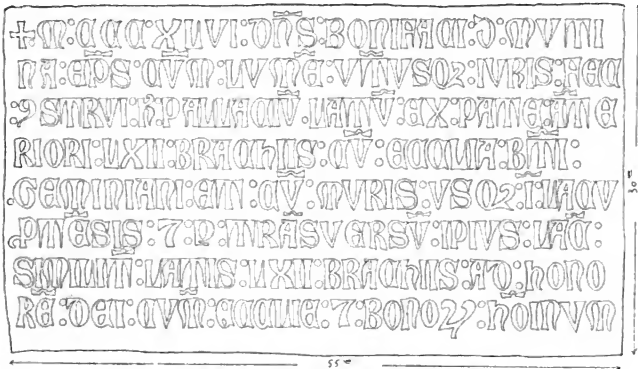 ✠ M : CCC XLVI : DNS : BONIFACI : D : MVTI
NA : EPS CVM : LVME : VITVSQ2 : IVRIS : HEC
: 9STRVI : PALLACIV . LATV : EX : PATE : ITE
RIORI : LXII : BRACHIIS : CV : ECCLIA : BTI :
. GEMINIANI : ETI : CV : MVRIS : VSQ2 : I : LACV
7 : P : TRASVERSV : IPIVS : LAC :
SIMILIT : LATIS : LXII : BRACHIIS : AD : HONO
RE : DEI : CVM : ECCLIE : 7 : BONOꝝ : HOIMVM
55
30